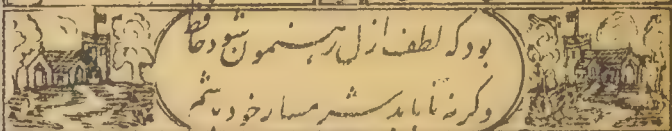 بود که لطف ازل رہنمون شود حافظ
وگرنه تا بابد شرمسار خود باشم